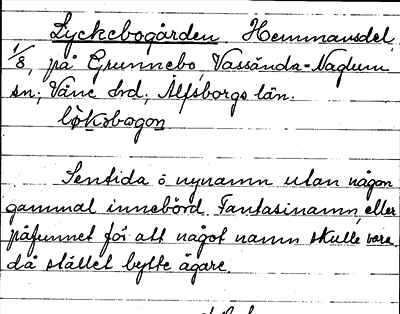 Lyckebogården. Hemmansdel,
1/8, på Grunnebo, Vassända-Naglum
sn; Väne hd; Älfsborgs län.
lỳkəbogon
Sentida o nynamn utan någon
gammal innebörd. Fantasinamn, eller
påfunnet för att något namn skulle vara
då stället bytte ägare.